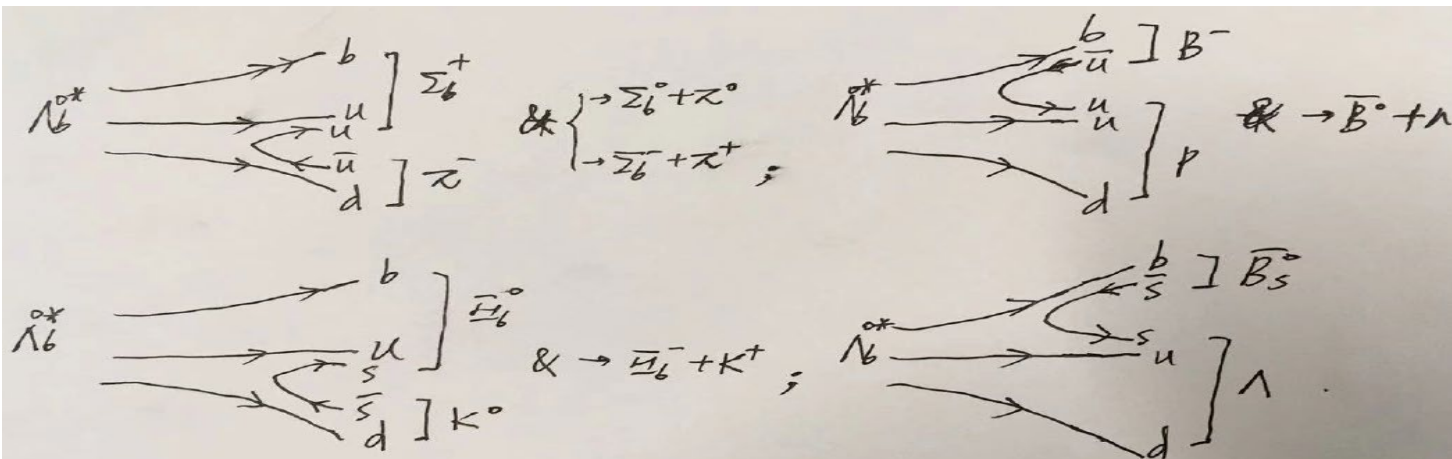 Λb⁰* b ] Σb⁺
u
u
ū
d ] π⁻
& { → Σb⁰ + π⁰
→ Σb⁻ + π⁺ ;
Λb⁰* b
ū ] B⁻
u
u
d ] p
& → B̅⁰ + n
Λb⁰* b ] Ξb⁰
u
s
s̅
d ] K⁰
& → Ξb⁻ + K⁺ ;
Λb⁰* b
s̅ ] B̅s⁰
s
u
d ] Λ .